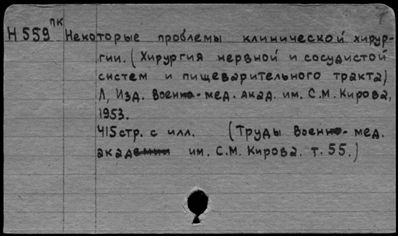 Н 559 пк Некоторые проблемы клинической хирур-
гии. (Хирургия нервной и сосудистой
систем и пищеварительного тракта)
Л, Изд. Военно-мед. акад. им. С.М. Кирова,
1953.
415 стр. с илл. (Труды Военно-мед.
академии им. С.М. Кирова. т. 55.)